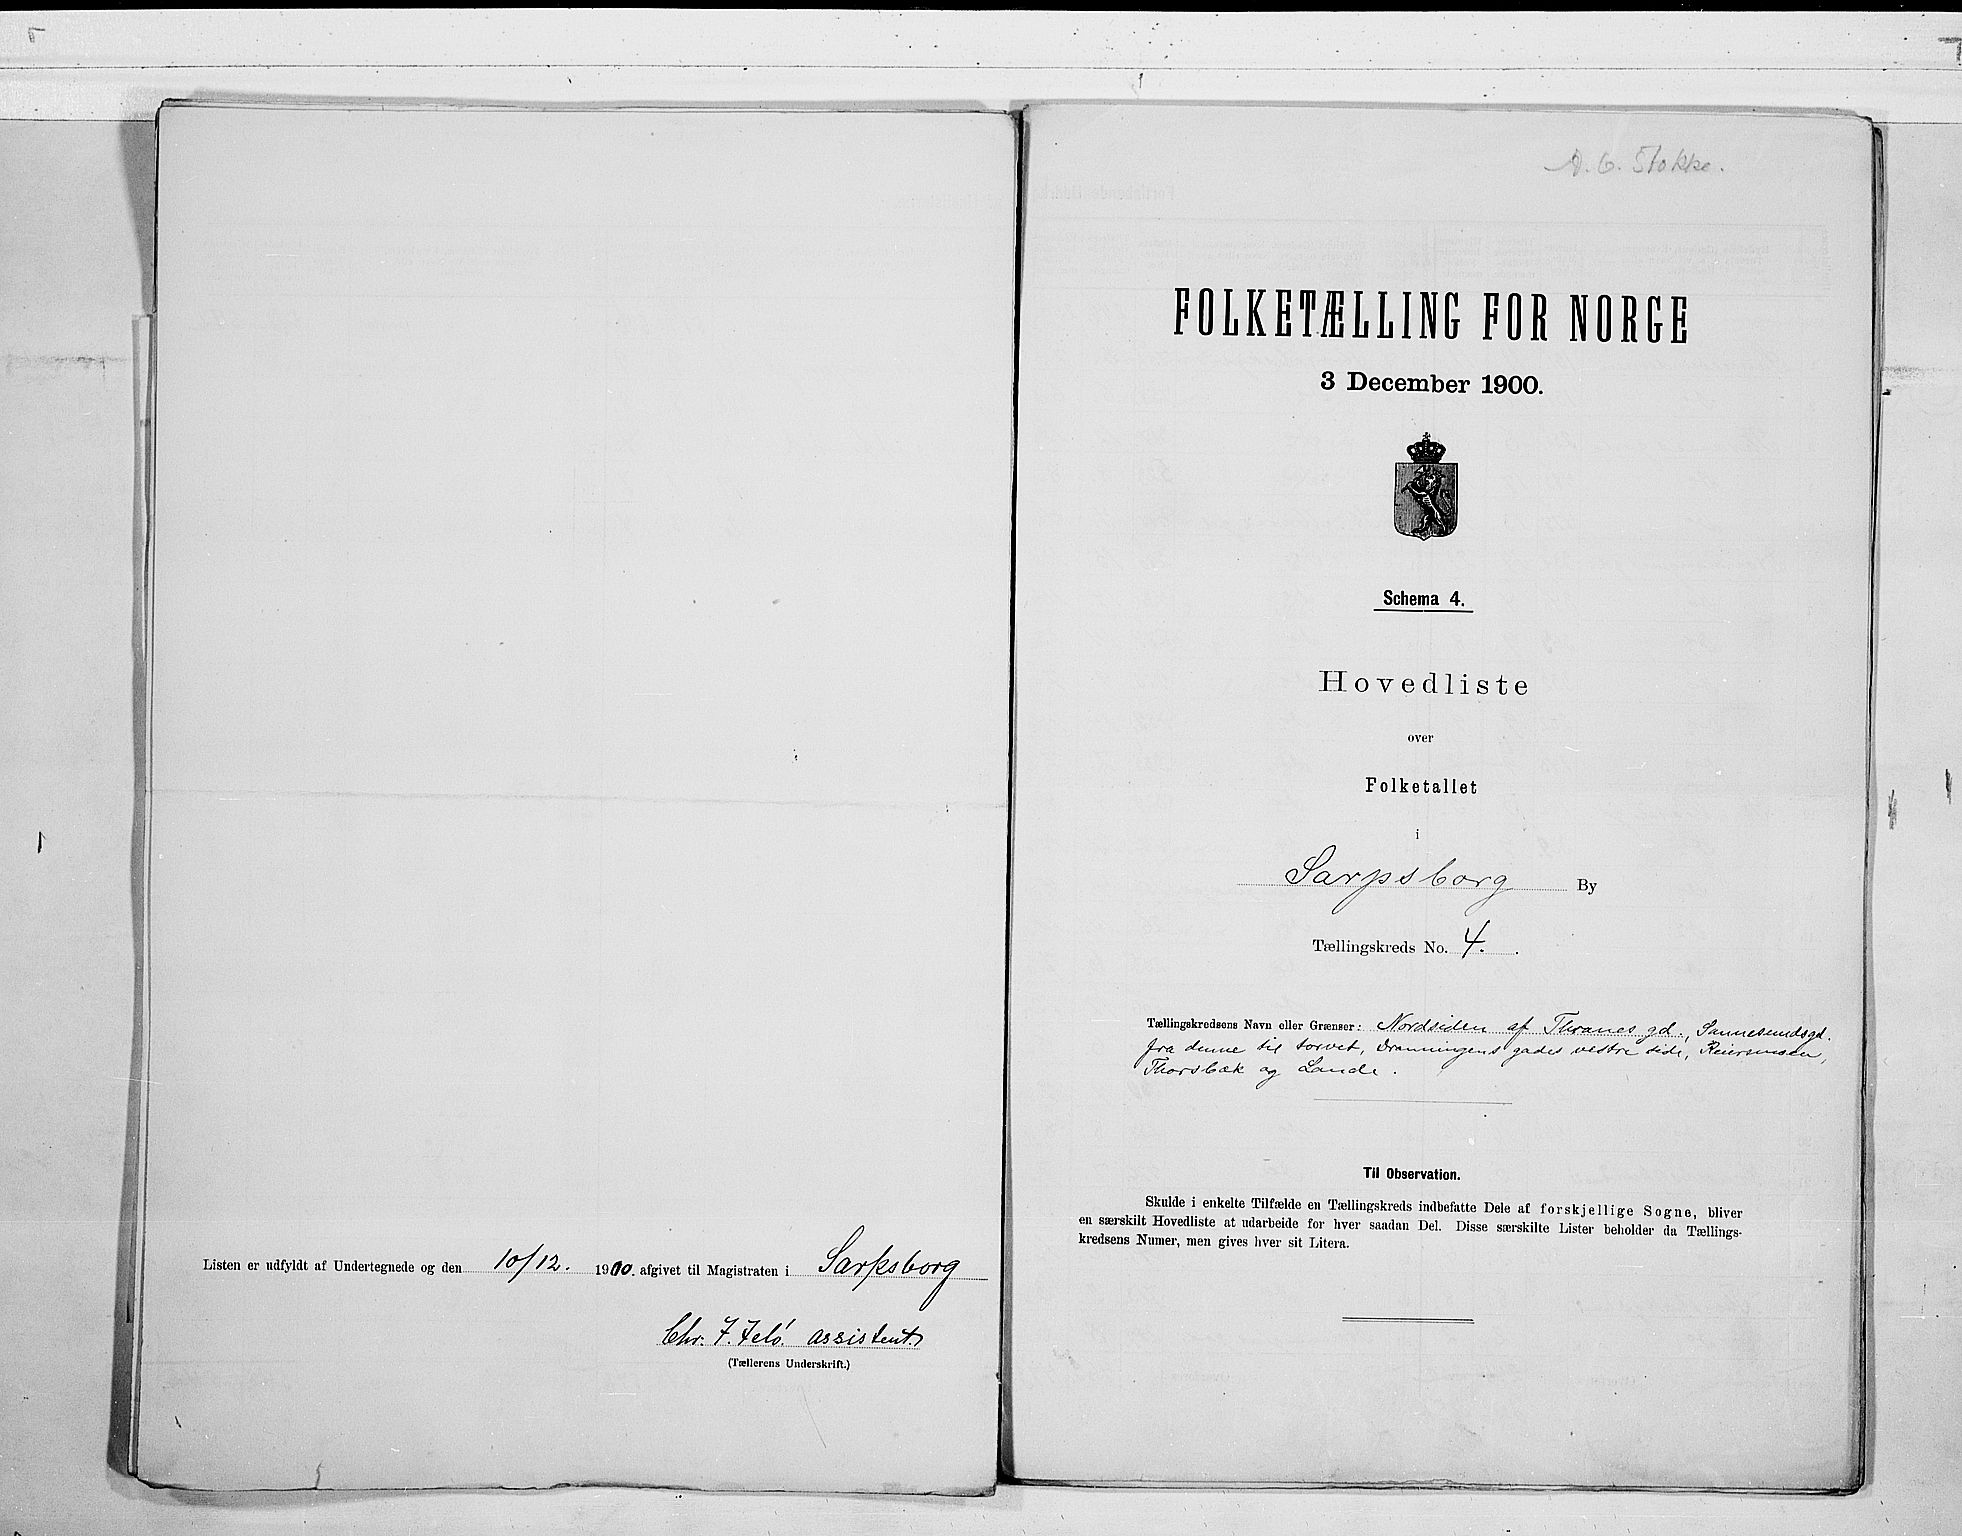 Listen er udfyldt af Undertegnede og den 10/12. 1900. afgivet til Magistraten i Sarpsborg
Chr. F. assistent.
(Tællerens Underskrift.)
A. C. Stokke.
FOLKETÆLLING FOR NORGE
3 December 1900.
Schema 4.
Hovedliste
over
Folketallet
i
Sarpsborg By
Tællingskreds No. 4.
Tællingskredsens Navn eller Grænser: Nordsiden af Thranes gd., Sannesundsgd.
fra denne til torvet, Dronningens gades vestre side, Reiersmoen,
Thorsbæk og Lande.
Til Observation.
Skulde i enkelte Tilfælde en Tællingskreds indbefatte Dele af forskjellige Sogne, bliver
en særskilt Hovedliste at udarbeide for hver saadan Del. Disse særskilte Lister beholder da Tællings-
kredsens Numer, men gives hver sit Litera.